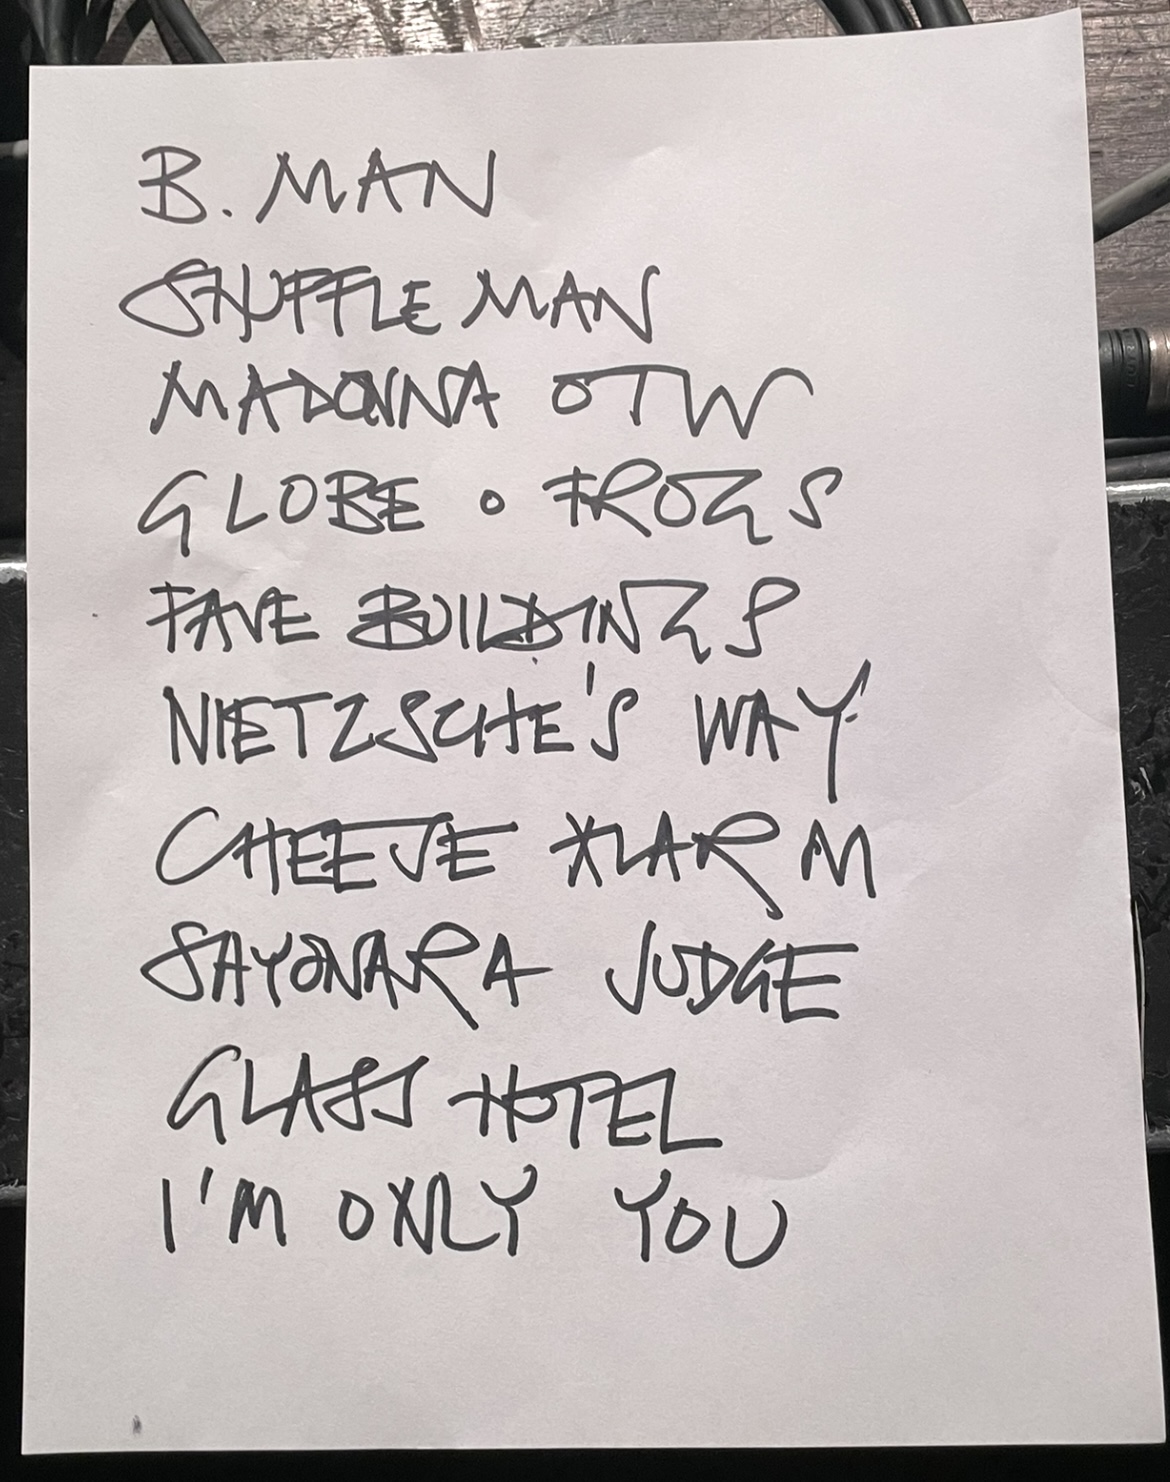 B. MAN
SHUFFLE MAN
MADONNA OTW
GLOBE o FROGS
FAVE BUILDINGS
NIETZSCHE'S WAY
CHEESE ALARM
SAYONARA JUDGE
GLASS HOTEL
I'M ONLY YOU